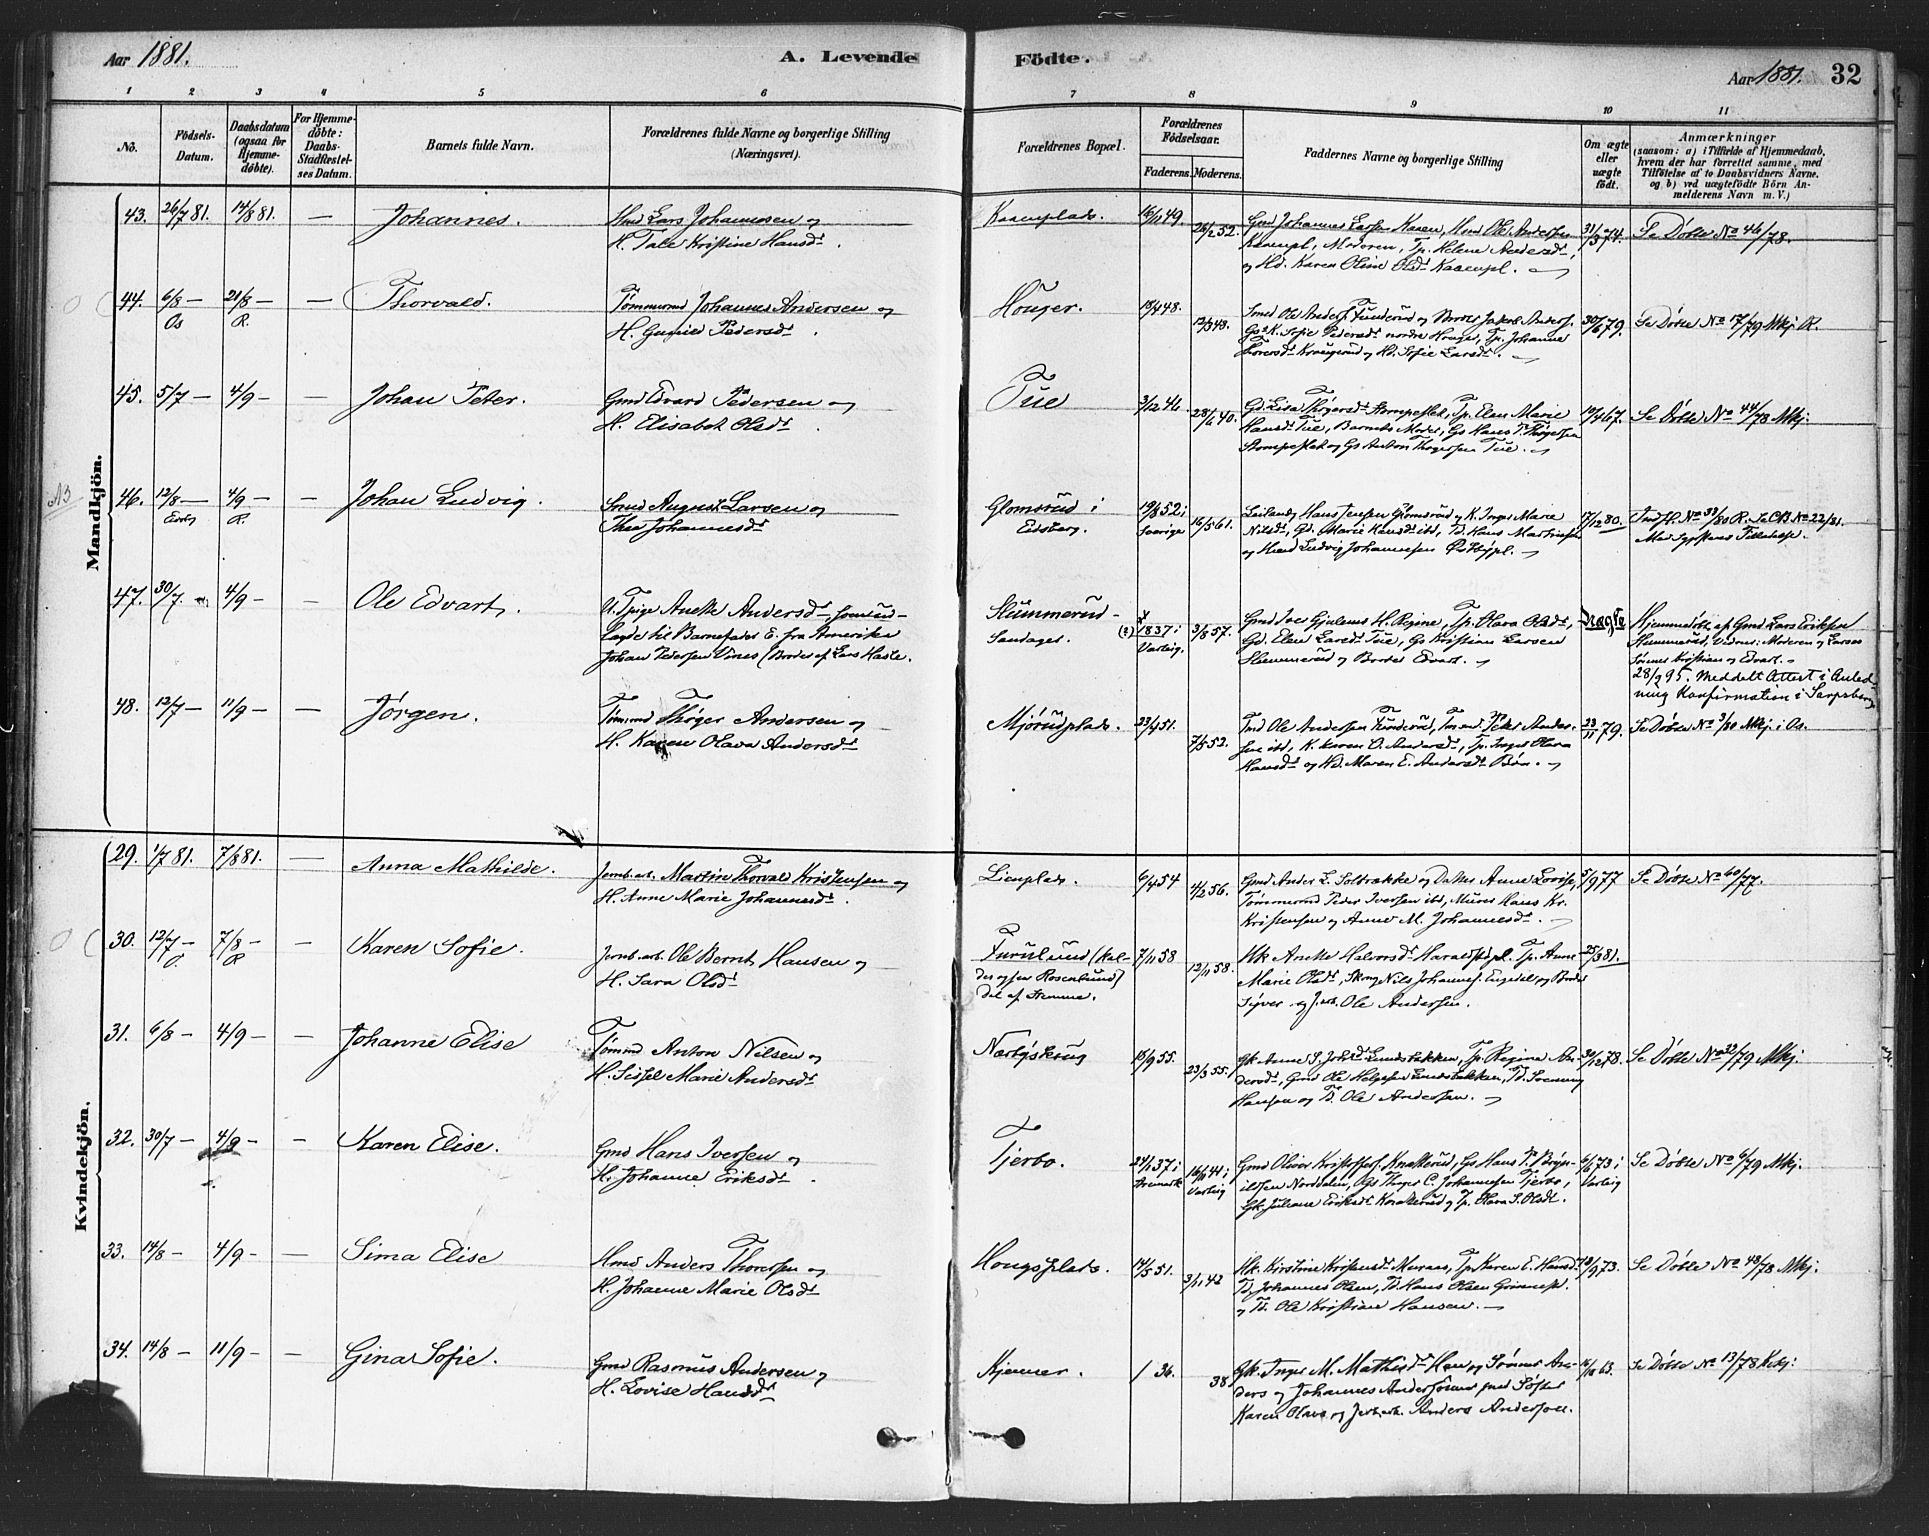 Aar 1881.
A. Levende
Födte.
Aar 1881. 32
1 2 3 4 5 6 7 8 9 10 11
No.
Födsels-
Datum.
Daabsdatum
(ogsaa for
Hjemme-
døbte).
For Hjemme-
døbte:
Daabs-
Stadfæstel-
ses Datum.
Barnets fulde Navn.
Forældrenes fulde Navne og borgerlige Stilling
(Næringsvei).
Forældrenes Bopæl.
Forældrenes
Födselsaar.
Faderens. Moderens.
Faddernes Navne og borgerlige Stilling
Om ægte
eller
uægte
født.
Anmærkninger
(saasom: a) i Tilfælde af Hjemmedaab,
hvem der har forrettet samme, med
Tilføielse af to Daabsvidners Navne.
og b) ved uægtefødte Börn An-
melderens Navn m.V.)
Mandkjön.
43. 26/7 81. 14/8 81. — Johannes.
Lars Johannesen og
H. Tale Kristine Hansdt.
Kaaenplads. 16/11 49. 26/2 52.
Gmd Johannes Larsen Kaaen, Ole Andersen
Kaaenpl, Moderen, Tp. Helene Andersdt,
og Hd. Karen Oline Olsdt Kaaenpl.
31/3 74. Se Döbte No 46/78.
44. 6/8 — 21/8 — — Thorvald.
Os R.
Tømmermd Johannes Andersen og
H. Gunild Pedersdt.
Houger. 18/4 48. 12/3 48.
Smed Ole Anders. Funderud og Broder Jakob Anders.
Sofie Pedersdt nordre Houge, Tp. Johanne
Thoresdt Kraugerud og Hd. Sofie Larsdt.
30/6 79. Se Døbte No 17/79 Mkj. R.
45. 5/7 — 4/9 — — Johan Peter.
Gmd Edvard Pedersen og
H. Elisabet Olsdt.
Tue 3/12 46. 28/6 40.
Gd. Lisa Thøgersdt Stompeslet, Tp. Elen Marie
Hansdt Tue, Barnets Moder, Gs Hans T. Thøgersen
Stompeslet og Gs Anton Thøgersen Tue.
19/4 67. Se Døbte No 44/78 Mkj.
46. 12/8 — 4/9 — — Johan Ludvig.
R.
Smed August Larsen og
Thea Johannesdt
Glomsrud i
Eidsberg.
19/8 52 i
Sverige
16/5 61.
Leilænd. Hans Jensen Glomsrud og K. Inger Marie
Nilsdt, Gd. Marie Hansdt ibd, Td. Hans Martinsen
og Ludvig Johannesen
17/12 80.
47. 30/7. 4/9 — — Ole Edvart.
U. Tpige Anette Andersdt
Lagde til Barnefader E. fra Amerika
Johan Pedersen Vines (Broder af Lars Hasle.
Slummerud -
Sandaget.
(2) 1837 i
Varteig.
3/8 57.
Gmd Iver Gjulems H. Regine, Tp. Olava Olsdt,
Gd. Elen Larsdt Tue, Gs Kristian Larsen
Slummerud og Broder Edvart.
Uægte
Hjemmedøbt af Gmd Lars Eriksen
Slummerud, Vidner: Moderen og Larses
Sønner Kristian og Edvart.
28/9 95. Meddelt Attest i Anled-
ning Konfirmation i Sarpsborg
48. 12/7 — 11/9 — — Jørgen.
Tømmd Thøger Andersen og
H. Karen Olava Andersdt
Mjørudplads. 23/4 51. 7/5 52.
Tmd Ole Andersen Funderud, Peter Ander-
sen ibd, K. Karen O. Andersdt, Tp. Inger Olava
Hansdt og Hd. Maren E. Andersdt Bøn.
23/11 79. Se Døbte No 3/80 Mkj. i Os.
Kvindekjön.
29. 1/7 81. 7/8 81. — Anna Mathilde.
Jernb.arb. Martin Thorvald Kristensen og
H. Anne Marie Johannesdt.
Lienplads. 6/4 54 4/2 56.
Gmd Anders L. Soltrække og Datter Anne Lovise,
Tømmermd Peder Iversen ibd, Murer Hans Kr.
Kristensen og Anne M. Johannesdt.
5/9 77 Se Døbte No 60/77.
30. 12/7 — 7/8 — — Karen Sofie.
R
Jernb.arb. Ole Bernt Hansen og
H. Sara Olsdt
Furulund (kal-
des ogsaa Rosenlund)
Del af Stemme.
7/11 58 12/11 58.
Hk Anette Halvorsdt Haraldstpl. Tp. Anne
Marie Olsdt, Nils Johannes. Engedal, og Broder
Syver og J.arb. Ole Andersen.
25/3 81.
31. 6/8 — 4/9 — — Johanne Elise
Tømmd Anton Nilsen og
H. Sissel Marie Andersdt
Narbyskrug 15/9 55. 23/3 55.
Gk. Anne S. Johsdt Lundebakken, Tp. Regine An-
dersdt, Gmd Ole Helgesen Lundebakken, Td. Svenning
Hansen og Td. Ole Andersen.
30/12 78. Se Døbte No 32/79 Mkj.
32. 30/7 — 4/9 — — Karen Elise.
Gmd Hans Iversen og
H. Johanne Eriksdt.
Tjerbo. 24/1 37 i
Aremark
16/11 41 i
Varteig
Gmd Oliver Kristoffers. Knatterud, Gs Hans T. Bryn-
ildsen Norddalen, Gs Thøger C. Johannesen Tjerbo,
Gk. Juliane Eriksdt Knatterud og Tp. Olava S. Olsdt.
6/6 73 i
Varteig
Se Døbte No 6/79 Mkj.
33. 14/8 — 4/9 — — Sima Elise
Hmd Anders Thoresen og
H. Johanne Marie Olsdt
Hougsplads. 14/5 51. 3/11 42
Hk. Kirstine Kristensdt Muraas, Tp. Karen E. Hansdt
Td. Johannes Olsen, Td. Hans Olsen Grimmepl.
og Td. Ole Kristian Hansen.
73. Se Døbte No 48/78 Mkj.
34. 14/8 — 11/9 — — Gina Sofie.
Gmd Rasmus Andersen og
H. Lovise Hansdt
Kjenner. / 36. 38.
Gk. Inger M. Mathisdt Hen og Sønner An-
ders og Johannes Anderssønner med Søster
Karen Olava og Jerb.arb. Anders Andersen.
16/10 63. Se Døbte No 13/78 Kvkj.